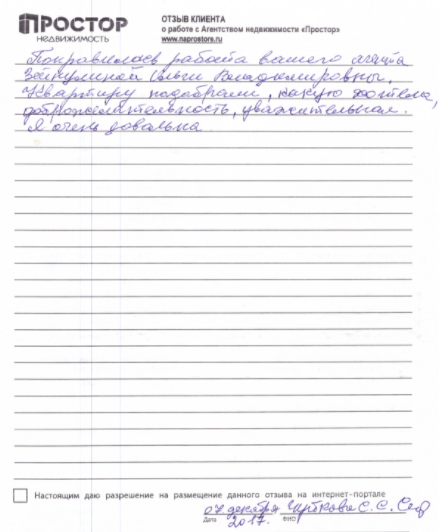 ПРОСТОР
НЕДВИЖИМОСТЬ
ОТЗЫВ КЛИЕНТА
о работе с Агентством недвижимости «Простор»
www.naprostore.ru
Понравилась работа вашего агента
Ольги Владимировны.
Квартиру подобрали, какую хотела,
доброжелательность, уважительная.
Я очень довальна.
Настоящим даю разрешение на размещение данного отзыва на интернет-портале
07 декабря С.С.
2017.
Дата ФИО